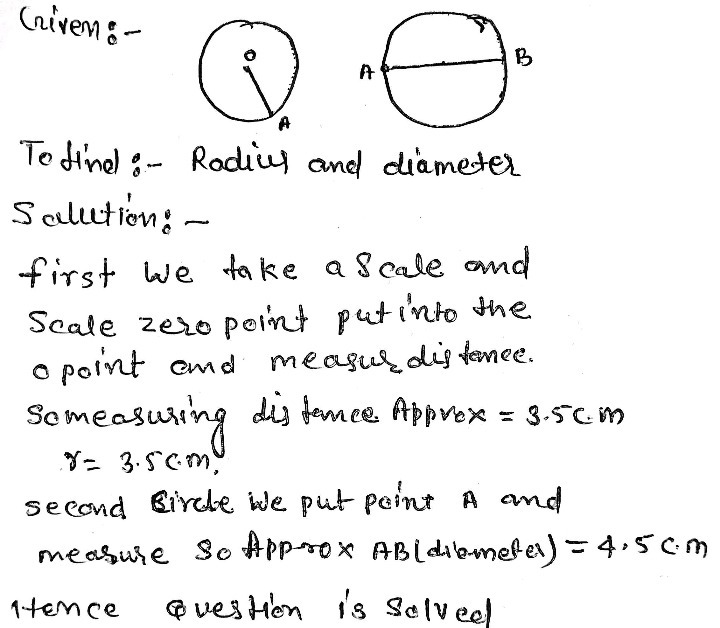 Given :-
O
A
A
B
To find :- Radius and diameter
Solution: -
first we take a Scale and
Scale zero point put into the
o point and measure distance.
So measuring distance Approx = 3.5 c.m
r = 3.5 c.m.
second Circle we put point A and
measure So Approx AB (diameter) = 4.5 c.m
Hence Question is Solved